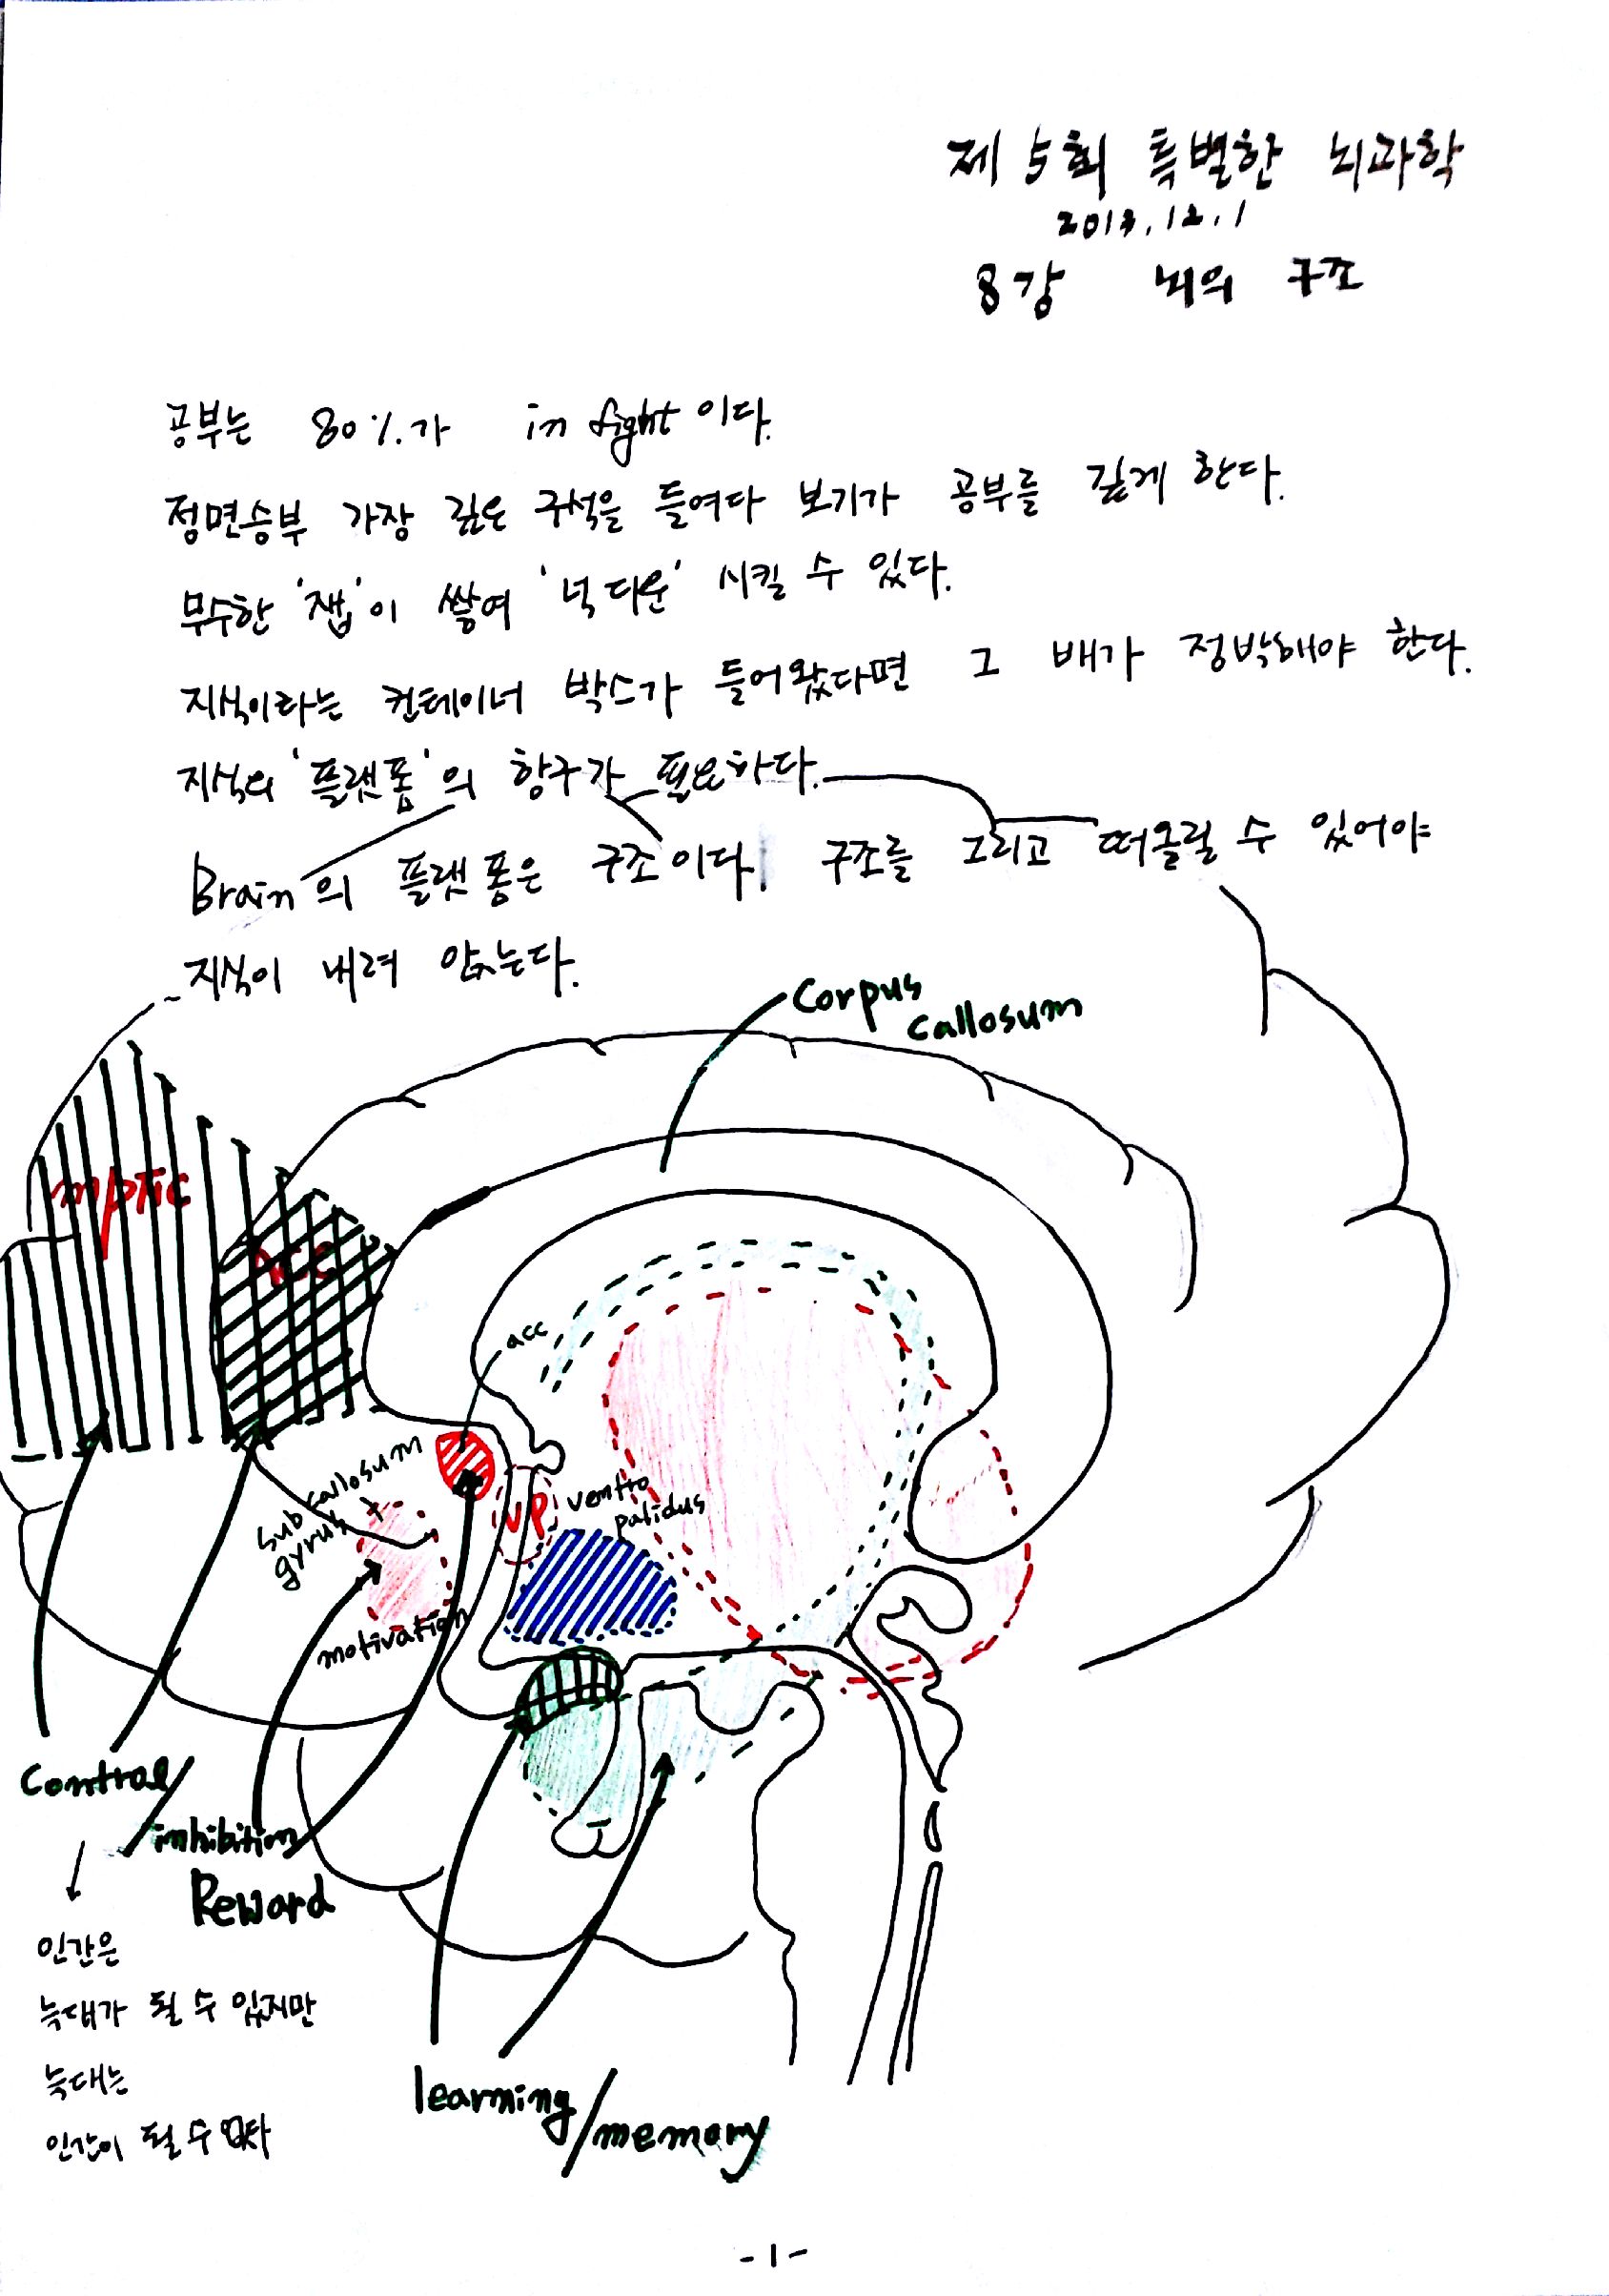 제 5회 특별한 뇌과학
2013.12.1
8강 뇌의 구조
공부는 80%가 in fight 이다.
정면승부 가장 깊은 구석을 들여다 보기가 공부를 깊게 한다.
무수한 '잽'이 쌓여 '넉다운' 시킬 수 있다.
지식이라는 컨테이너 박스가 들어왔다면 그 배가 정박해야 한다.
지식의 '플랫폼'의 항구가 필요하다.
Brain의 플랫폼은 구조이다. 구조를 그리고 떠올릴 수 있어야
지식이 내려 앉는다.
Corpus
callosum
acc
sub callosum
gyrus
VP
ventro
palidus
motivation
control/
inhibition
Reward
인간은
늑대가 될 수 있지만
늑대는
인간이 될 수 없다
learning
/memory
-1-